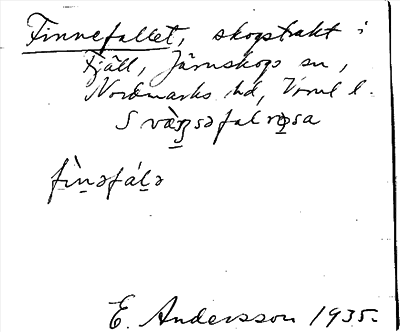 Finnefallet, skogstrakt i
Fjäll, Järnskogs sn,
Nordmarks hd, Vrml l.
S
fìn̲əfál̲ə
E. Andersson 1935.